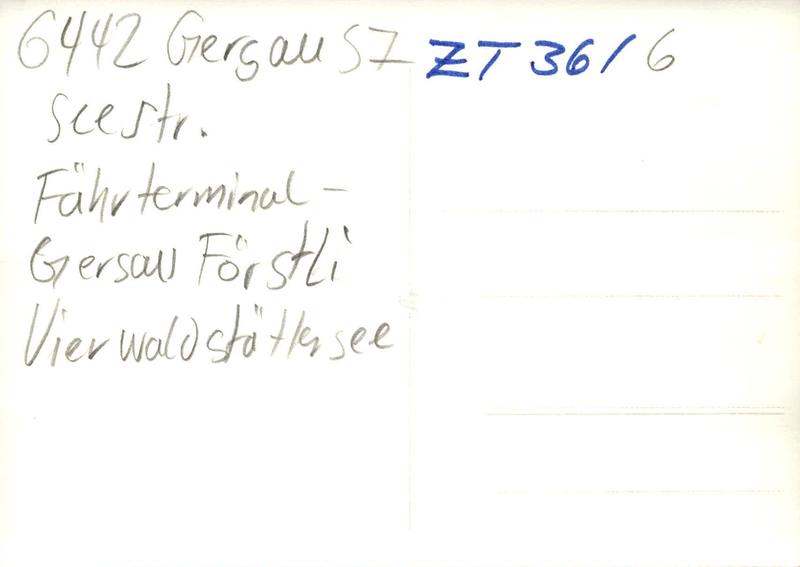 6442 Gersau SZ ZT 36/6
Seestr.
Fährterminal-
Gersau Förstli
Vierwaldstättersee